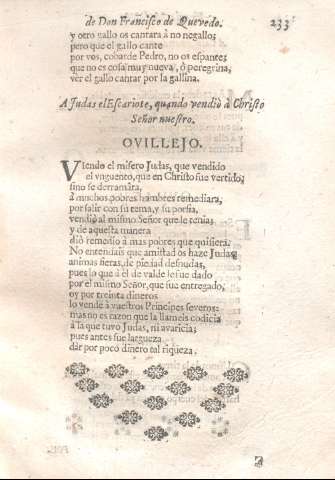 de Don Francisco de Quevedo. 233
y otro gallo os cantara à no negallo;
pero que el gallo cante
por vos, cobarde Pedro, no os espante;
que no es cosa muy nueva, ò peregrina,
vèr el gallo cantar por la gallina.
A Judas el Escariote, quando vendiò à Christo
Señor nuestro.
OVILLEJO.
Viendo el misero Judas, que vendido
el vnguento, que en Christo fue vertido;
sino se derramàra,
à muchos pobres hombres remediara,
por salir con su tema, y su porfia,
vendiò al mismo Señor que le tenia;
y de aquesta manera
diò remedio à mas pobres que quisiera.
No entendais que amistad os haze Judas,
animas fieras, de piedad desnudas,
pues lo que à èl de valde le fue dado
por el mismo Señor, que fue entregado,
oy por treinta dineros
lo vende à vuestros Principes severos:
mas no es razon que la llameis codicia
à la que tuvo Judas, ni avaricia;
pues antes fue largueza
dàr por poco dinero tal riqueza.